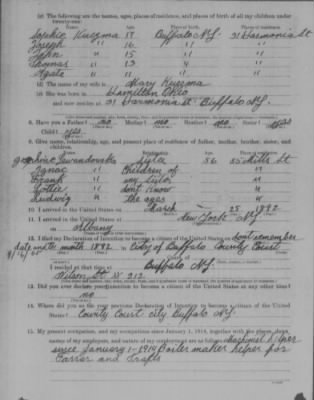 (c) The following are the names, ages, places of residence, and places of birth of all my children under
twenty-one:
Name. Age. Place of birth. Place of residence.
Sophie Kuczma 17 Buffalo N.Y. 31 Harmonia St
Joseph " 16 " "
John " 15 " "
Thomas " 13 " "
Agate " 11 " "
(d) The name of my wife is Mary Kuczma
(e) She was born in Hamilton Ohio
and now resides at 31 Harmonia St Buffalo N.Y.
8. Have you a Father? no Mother? no Brother? no Sister? yes
Child? yes
9. Give name, relationship, age and present place of residence of father, mother, brother, sister, and
children.
Name. Relationship. Age. Residence.
Lewandowska Sister 56 55 Mills St
Ignac " Children of "
Frank " my sister "
Lottie " dont know "
Ludwig " the ages "
10. I arrived in the United States March 25 1892
11. I arrived in the United States at New York N.Y.
on Albany
12. I filed my Declaration of Intention to become a citizen of the United States on dont remember
date and the month 1892 in City of Buffalo County Court
Buffalo N.Y.
I resided at that time at
Wilson St # 212
13. Did you ever before petition to become a citizen of the United States at any other time?
no
14. Where did you on your previous Declaration of Intention to become a citizen of the United
States? County Court City Buffalo N.Y.
15. My present occupation, and my occupations since January 1, 1914, together with the places, dates,
names of my employers, and nature of my employment are as follows: Machinest helper
since January 1-1914 Boiler maker helper for